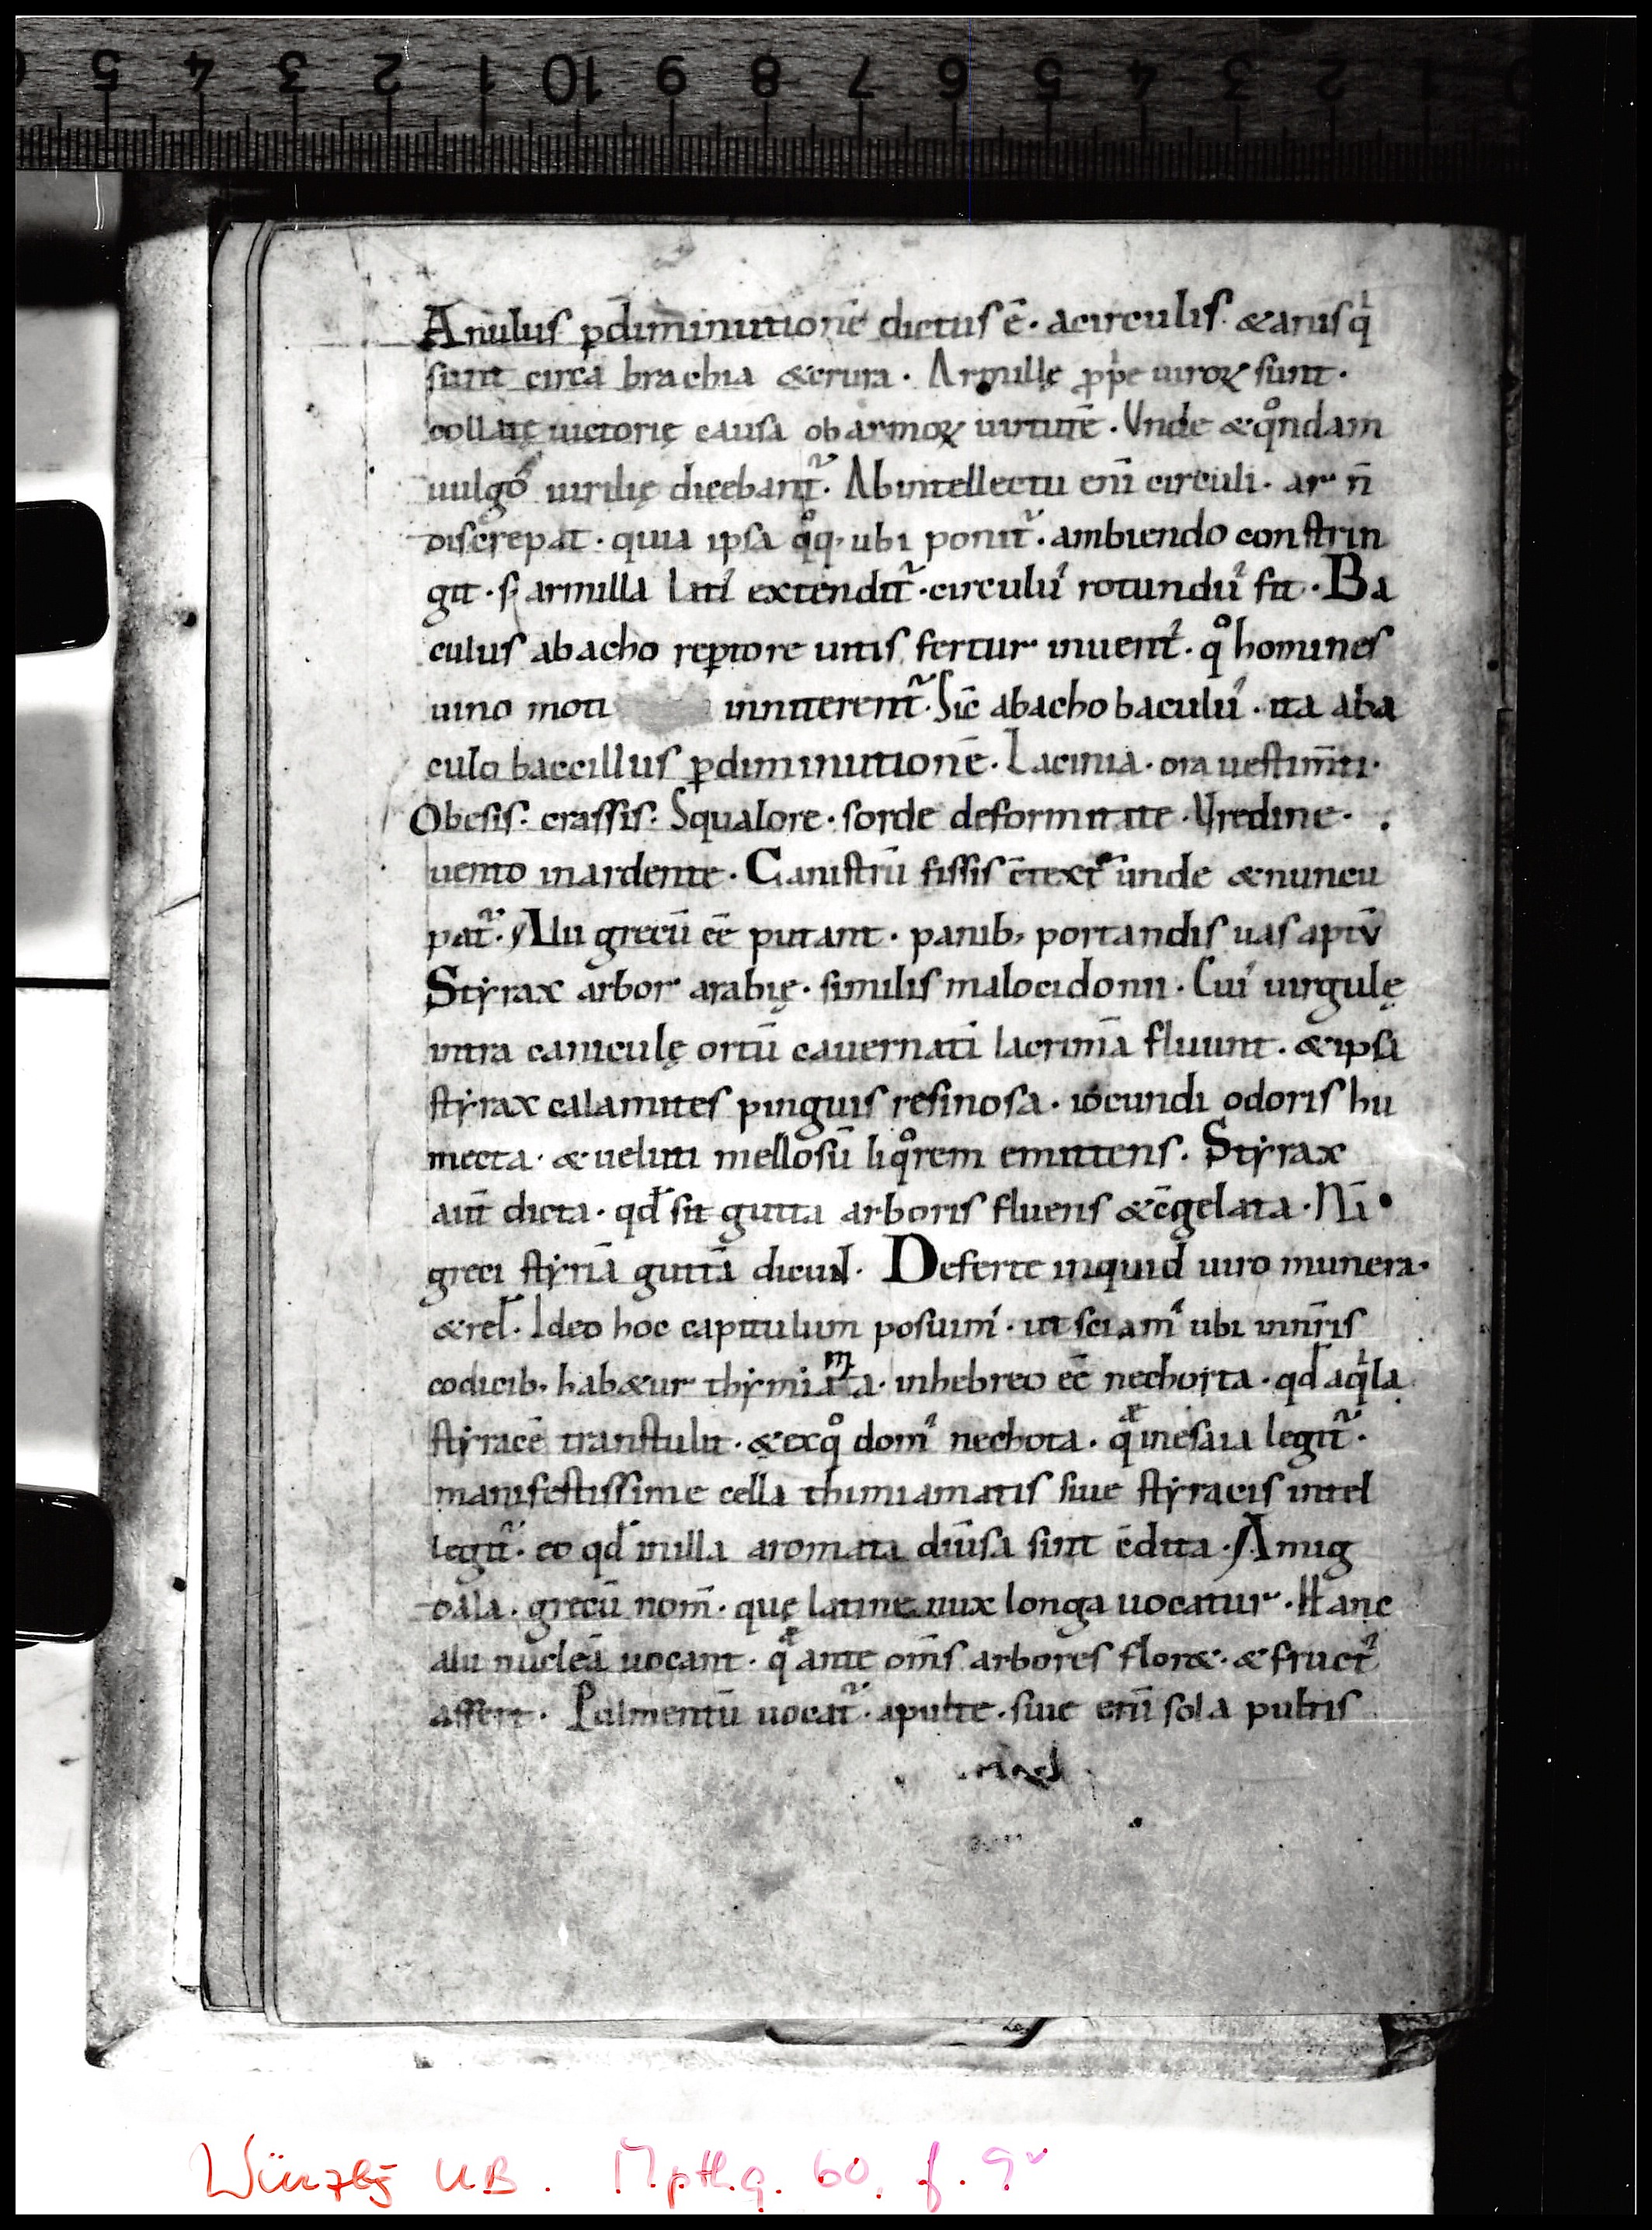 5 4 3 2 1 10 9 8 7 6 5 4 3 2 1 0
Anulus ꝑdiminutionē dictus ē· acirculis & anis qͥ
sunt circa brachia &crura· Armillę ꝓpͥe uiroꝝ sunt·
collatę uictorię causa ob armoꝝ uirtutē· Vnde &qͦndam
uulgo uirilię dicebant᷑· Abintellectu eni̅ circuli· ar n̅
discrepat· quia ipsa qͦq; ubi ponit᷑· ambiendo constrin
git· sꝫ armilla lati᾽ extendit᷑· circulu᾽ rotundu᾽ fit· Ba
culus abacho reꝑtore uitis fertur inuent᾽· qͦ homines
uino moti inniterent᷑· Sic̅ abacho baculu᾽· ita aba
culo baccillus ꝑdiminutionē· Lacinia· ora uestim̅ti·
Obesis· crassis· Squalore· sorde deformitate· Vredine·
uento inardente· Canistrū fissis c̅text᾽ unde &nuncu
pat᷑· Alii grecū ee̅ putant· panib; portandis uas aptū
Styrax arbor arabię· similis malocidonii· Cui᾽ uirgulę
intra caniculę ortū cauernati lacrimā fluunt· &ipsa
styrax calamites pinguis resinosa· iocundi odoris hu
mecta· &ueluti mellosū liqͦrem emittens· Styrax
aut̅ dicta· qđ sit gutta arboris fluens &c̅gelata· Nā
greci styriā guttā dicunt· Deferte inquid uiro munera·
&rel̅· Ideo hoc capitulum posuim᾽· ut sciam᾽ ubi inn̅ris
codicib; hab&ur thymiamata· inhebreo ee̅ nechota· qđ aqͥla
styracē transtulit· &exqͦ dom᾽ nechota· qͣ inesaia legit᷑·
manifestissime cella thimiamatis siue styracis intel
legit᷑· eo qđ inilla aromata diu̅sa sint c̅dita· Amig
dala· grecū nom̅· quę latine nux longa uocatur· Hanc
alii nucleā uocant· qͣ ante om̅s arbores flor&· &fruct᾽
affert· Pulmentū uocat᷑· apulte· siue eni̅ sola pultis
Würzbg UB. Mp.th.q. 60, f. 9v